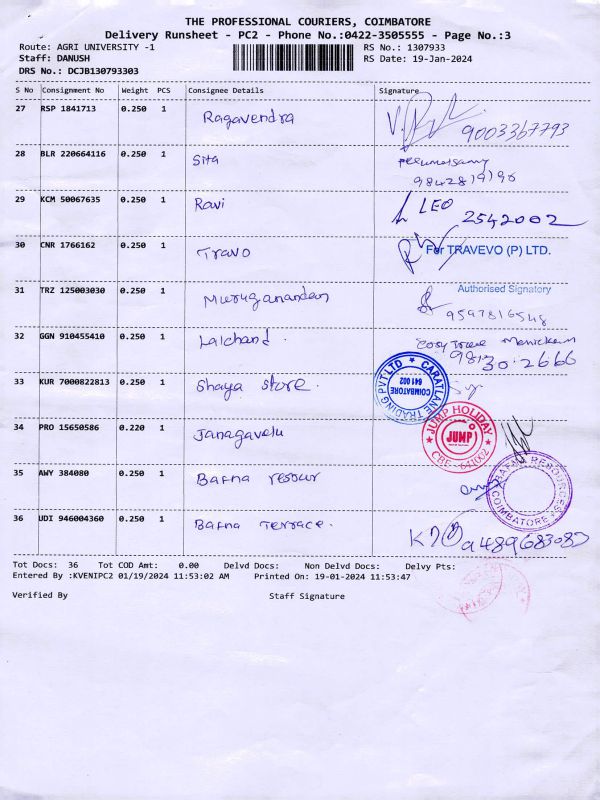 THE PROFESSIONAL COURIERS, COIMBATORE
Delivery Runsheet - PC2 - Phone No.:0422-3505555 - Page No.:3
Route: AGRI UNIVERSITY -1 RS No.: 1307933
Staff: DANUSH RS Date: 19-Jan-2024
DRS No.: DCJB130793303
S No Consignment No Weight PCS Consignee Details Signature
27 RSP 1841713 0.250 1 Ragavendra 9003367793
28 BLR 220664116 0.250 1 Sita Perumalsamy
9842819196
29 KCM 50067635 0.250 1 Ravi LEO 2542002
30 CNR 1766162 0.250 1 Travo For TRAVEVO (P) LTD.
Authorised Signatory
31 TRZ 125003030 0.250 1 Muruganandan 9597816548
32 GGN 910455410 0.250 1 Lalchand. Manickam
98130.2666
33 KUR 7000822813 0.250 1 Shaya Store. CARATLANE TRADING PVT LTD COIMBATORE 641 002
34 PRO 15650586 0.220 1 Janagavelu JUMP HOLIDAY JUMP CBE - 641002
35 AWY 384080 0.250 1 Bafna resour BAFNA RESOURCES COIMBATORE
36 UDI 946004360 0.250 1 Bafna Terrace. 9489683083
Tot Docs: 36 Tot COD Amt: 0.00 Delvd Docs: Non Delvd Docs: Delvy Pts:
Entered By :KVENIPC2 01/19/2024 11:53:02 AM Printed On: 19-01-2024 11:53:47
Verified By Staff Signature